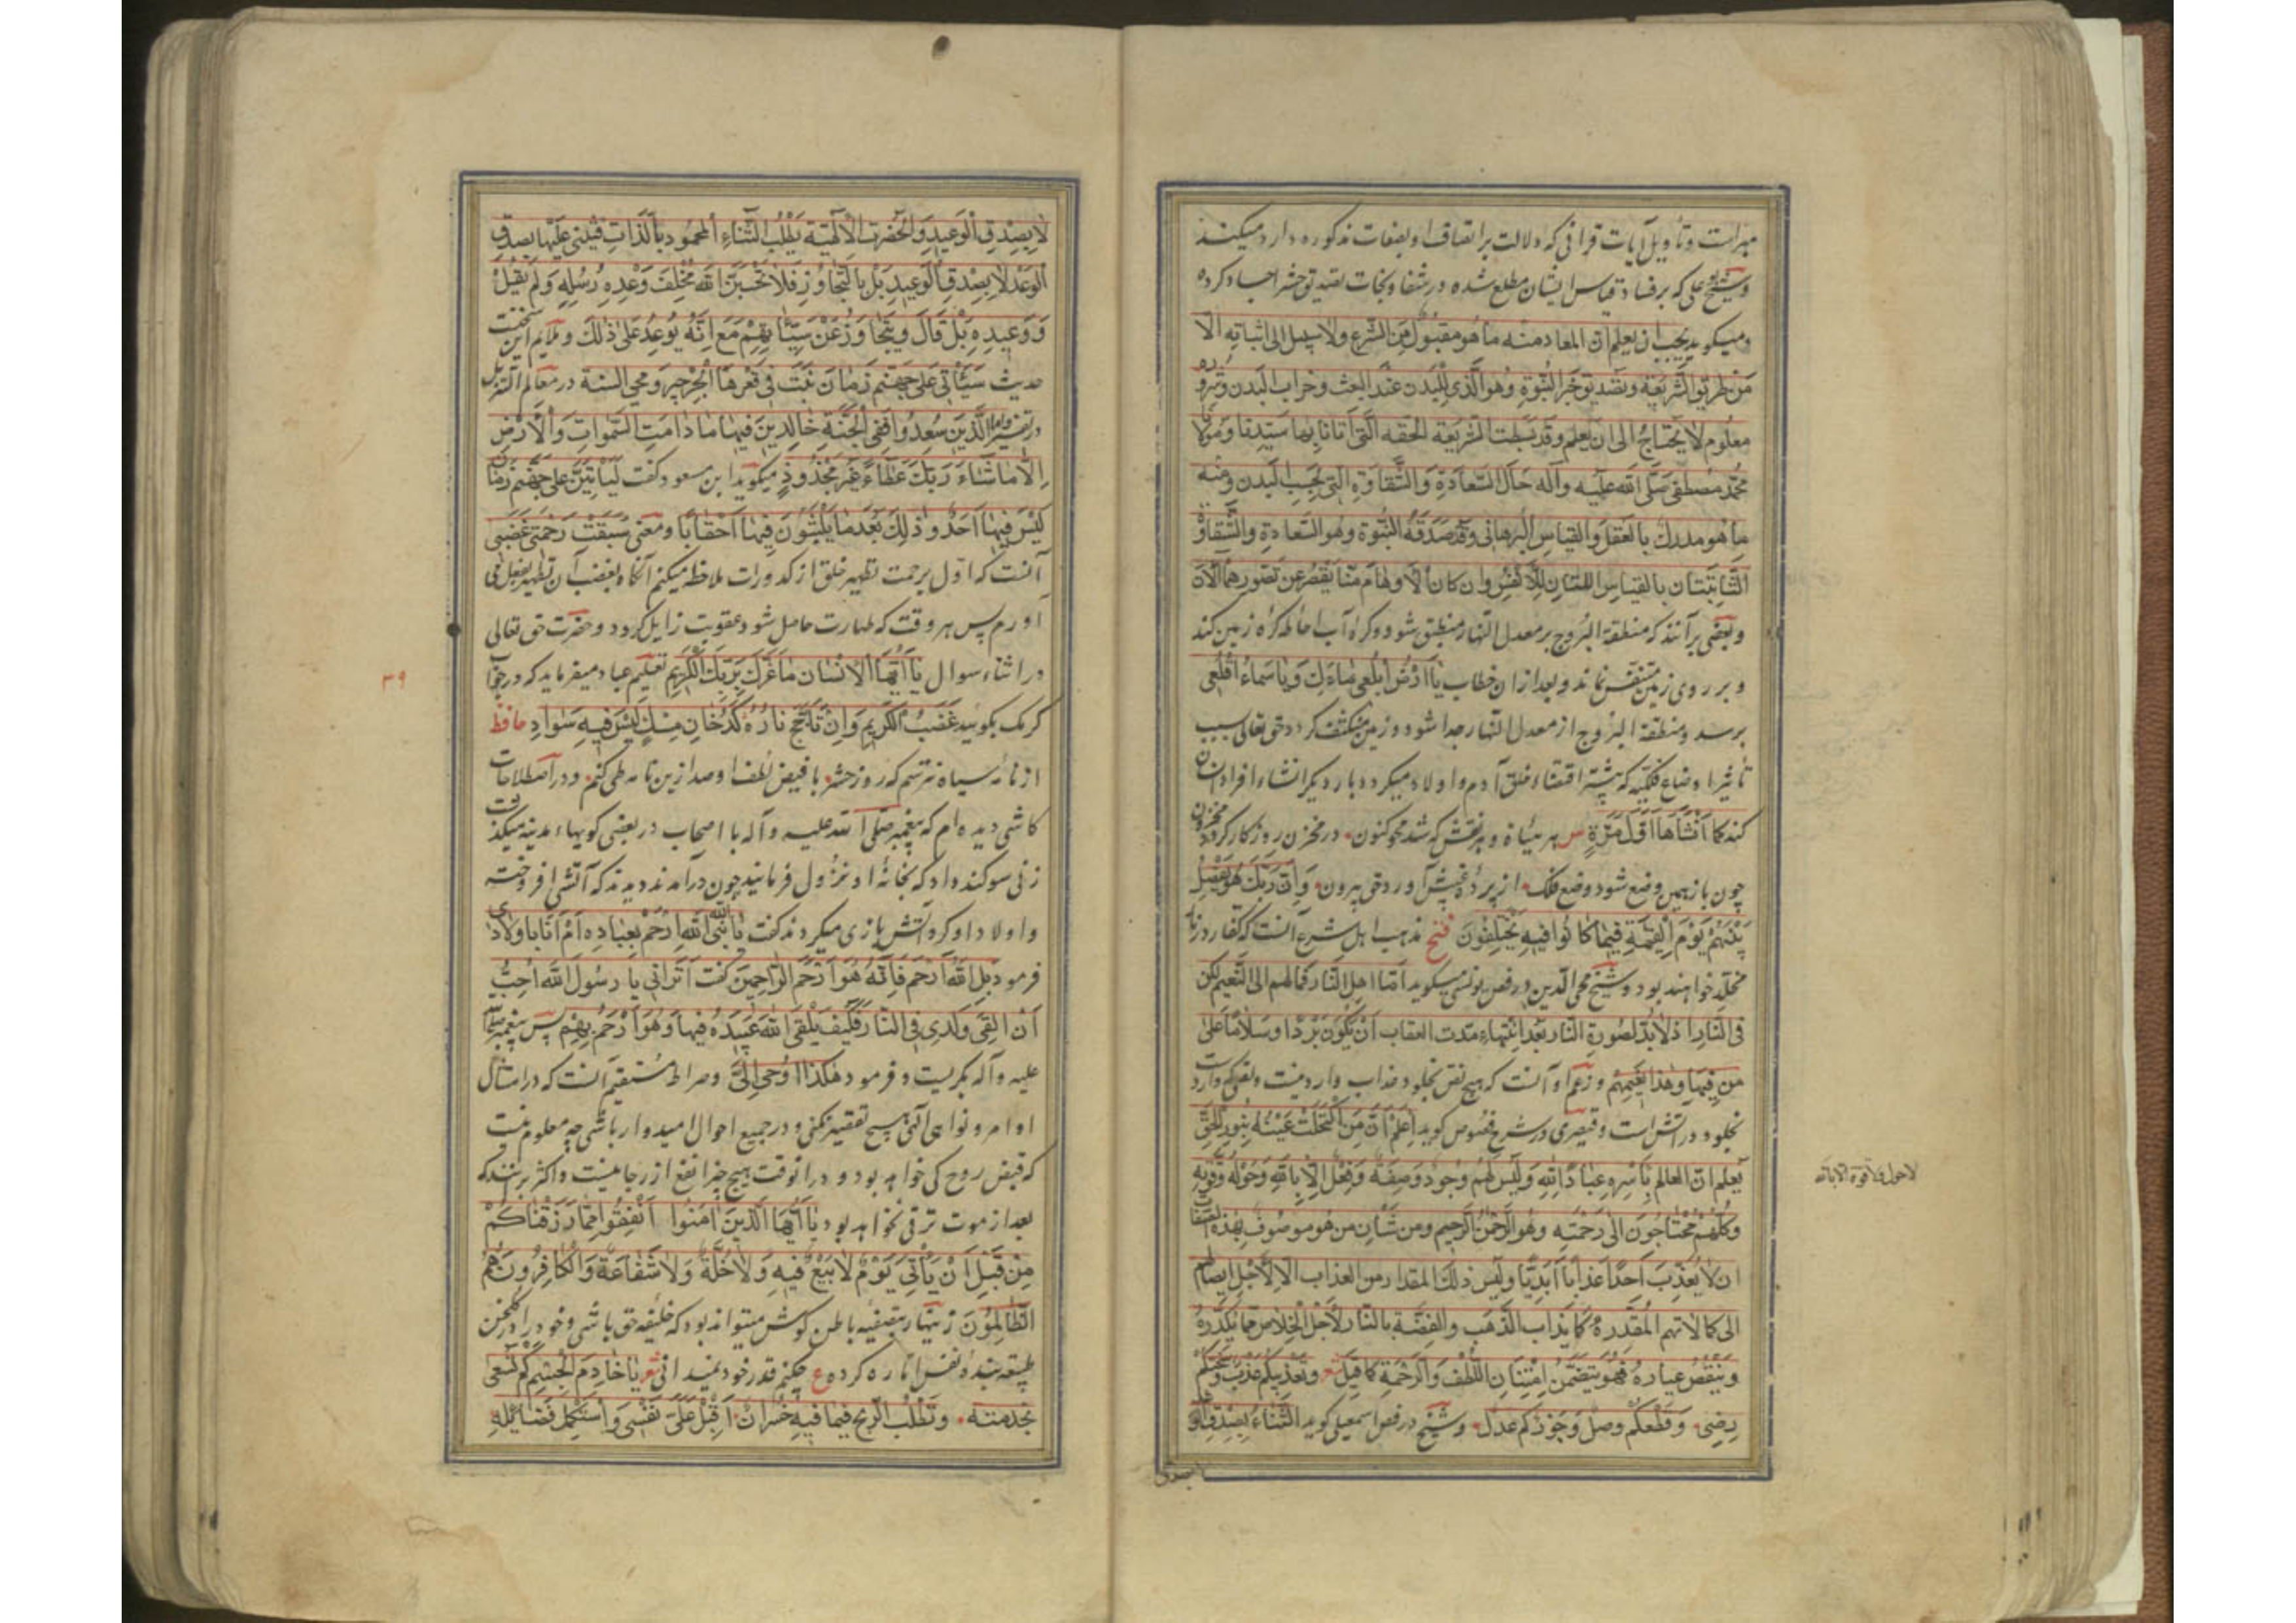 مبراست و تأویل آیات قرآنی که دلالت بر اتصاف او بصفات مذکوره دارد میکنند
و شیخ ابوعلی که بر فساد قیاس ایشان مطلع شده در شفا و نجات تصدیق حشر اجساد کرده
و میگوید یجب ان یعلم ان المعاد منه ما هو مقبول من الشرع ولا سبیل الی اثباته الا
من طریق الشریعه و تصدیق خبر النبوة وهو الذی للبدن عند البعث و خراب البدن و شروره
معلوم لا یحتاج الی ان یعلم وقد بسطت الشریعة الحقه التی أتانا بها سیدنا و مولانا
محمد مصطفی صلی الله علیه وآله حال السعادة والشقاوة التی بحسب البدن ومنه
ما هو مدرک بالعقل والقیاس البرهانی وقد صدقه النبوة وهو السعادة والشقاوة
الثابتتان بالقیاس اللتان للأنفس وان کان الأوهام منا یقصر عن تصورهما الآن
و بعضی برآنند که منطقة البروج بر معدل النهار منطبق شود و کرۀ آب احاطه کرۀ زمین کند
و بر روی زمین متنفس نماند و بعد از ان خطاب یا أرض ابلعی ماءک ویا سماء أقلعی
برسد و منطقة البروج از معدل النهار جدا شود و زمین منکشف گردد حق تعالی بسبب
تأثیر اوضاع فلکیه که پیشتر اقتضاء خلق آدم و اولاد میکرد دبار دیگر انشاء افراد انسان
کند کما أنشأها أول مرة س هر هیأة و هر نقش که شد محو کنون در مخزن روزگار گردد مخزون
چون باز همین وضع شود وضع فلک از پردۀ غیبش آورد حق بیرون وان ربک هو یفصل
بینهم یوم القیمة فیما کانوا فیه یختلفون فتح مذهب اهل شرع آنست که کفار در نار
مخلد خواهند بود و شیخ محی الدین در فص یونسی میگوید أما اهل النار فمآلهم الی النعیم لکن
فی النار اذ لا بد لصورة النار بعد انتهاء مدت العقاب أن یکون بردا وسلاما علی
من فیها وهذا نعیمهم و زعم او آنست که هیچ نص بخلود عذاب وارد نیست و نص که وارد است
بخلود در آتش است و قیصری در شرح فصوص گوید اعلم أن من اکتحلت عینه بنور الحق
یعلم ان العالم بأسره عباد الله ولیس لهم وجود وصفة وفعل إلا بالله وحوله وقوته
لا حول ولا قوة الا بالله
وکلهم محتاجون الی رحمته وهو الرحمن الرحیم ومن شأن من هو موصوف بهذه الصفات
ان لا یعذب احدا عذابا أبدیا ولیس ذلک المقدار من العذاب الا لأجل ایصالهم
الی کمالاتهم المقدرة کما یذاب الذهب والفضة بالنار لأجل الخلاص مما یکدره
وینقص عیاره فهو یتضمن اللطف والرحمة کما قیل شعر وتعذیبکم عذب وسخطکم
رضی وقطعکم وصل وجورکم عدل و شیخ در فص اسمعیلی گوید الثناء بصدق الوعد
لا بصدق
لا بصدق الوعید والحضرت الالهیة یطلب الثناء المحمود بالذات فیثنی علیها بصدق
الوعد لا بصدق الوعید بل بالتجاوز فلا تحسبن الله مخلف وعده رسله ولم یقل
ووعیده بل قال ویتجاوز عن سیئاتهم مع انه یوعد علی ذلک و ملایم این سخنست
حدیث سیأتی علی جهنم زمان نبت فی قعرها الجرجیر و محی السنة در معالم التنزیل
در تفسیر واما الذین سعدوا ففی الجنة خالدین فیها ما دامت السموات والأرض
إلا ما شاء ربک عطاء غیر مجذوذ میگوید ابن مسعود گفت لیأتین علی جهنم زمان
لیس فیها أحد و ذلک بعد ما یلبثون فیها أحقابا و معنی سبقت رحمتی غضبی
آنست که اول برحمت تطهیر خلق از کدورات ملاحظه میکنم آنگاه بغضب آن تطهیر بفعل می
آورم پس هر وقت که طهارت حاصل شود عقوبت زایل گردد و حضرت حق تعالی
در اثناء سوال یا أیها الانسان ما غرک بربک الکریم تعلیم عباد میفرماید که در جواب
۳۹
کرمک بگویید غضب الکریم وان تأجج ناره کدخان لیس فیه سواد حافظ
از نامۀ سیاه نترسم که روز حشر با فیض لطف او صد ازین نامه طی کنم و در اصطلاحات
کاشی دیده ام که پیغمبر صلی الله علیه وآله با اصحاب در بعضی کویهاء مدینه میگذشت
زنی سوگند داد که بخانۀ او نزول فرمایند چون درآمدند دیدند که آتشی افروخته
و اولاد او گرد آتش بازی میکردند گفت یا نبی الله الله أرحم بعباده أم أنا بأولادی
فرمود بل الله أرحم فانه هو أرحم الراحمین گفت أترانی یا رسول الله أحب
أن ألقی ولدی فی النار فکیف یلقی الله عبیده فیها وهو أرحم بهم پس پیغمبر صلی الله
علیه وآله بگریست و فرمود هکذا أوحی إلی و صراط مستقیم آنست که در امتثال
اوامر و نواهی الهی هیچ تقصیر نکنی و در جمیع احوال امیدوار باشی چه معلوم نیست
که قبض روح کی خواهد بود و در انوقت هیچ چیز انفع از رجا نیست و اکثر برآنند که
بعد از موت ترقی نخواهد بود یا أیها الذین امنوا أنفقوا مما رزقناکم
من قبل أن یأتی یوم لا بیع فیه ولا خلة ولا شفاعة والکافرون هم
الظالمون زینهار بتصفیه باطن کوش میتواند بود که خلیفه حق باشی و خود را در گلخن
طبیعه بندۀ نفس اماره کرده ع چکنم قدر خود نمیدانی شعر یا خادم الجسم کم تسعی
بخدمته وتطلب الربح فیما فیه خسران أقبل علی نفسی واستکمل فضائله